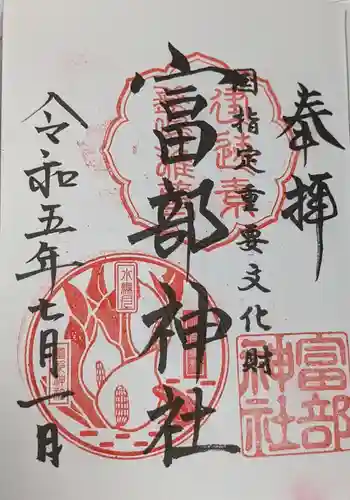 奉拝
国指定重要文化財
富部神社
令和五年七月一日
富部
神社